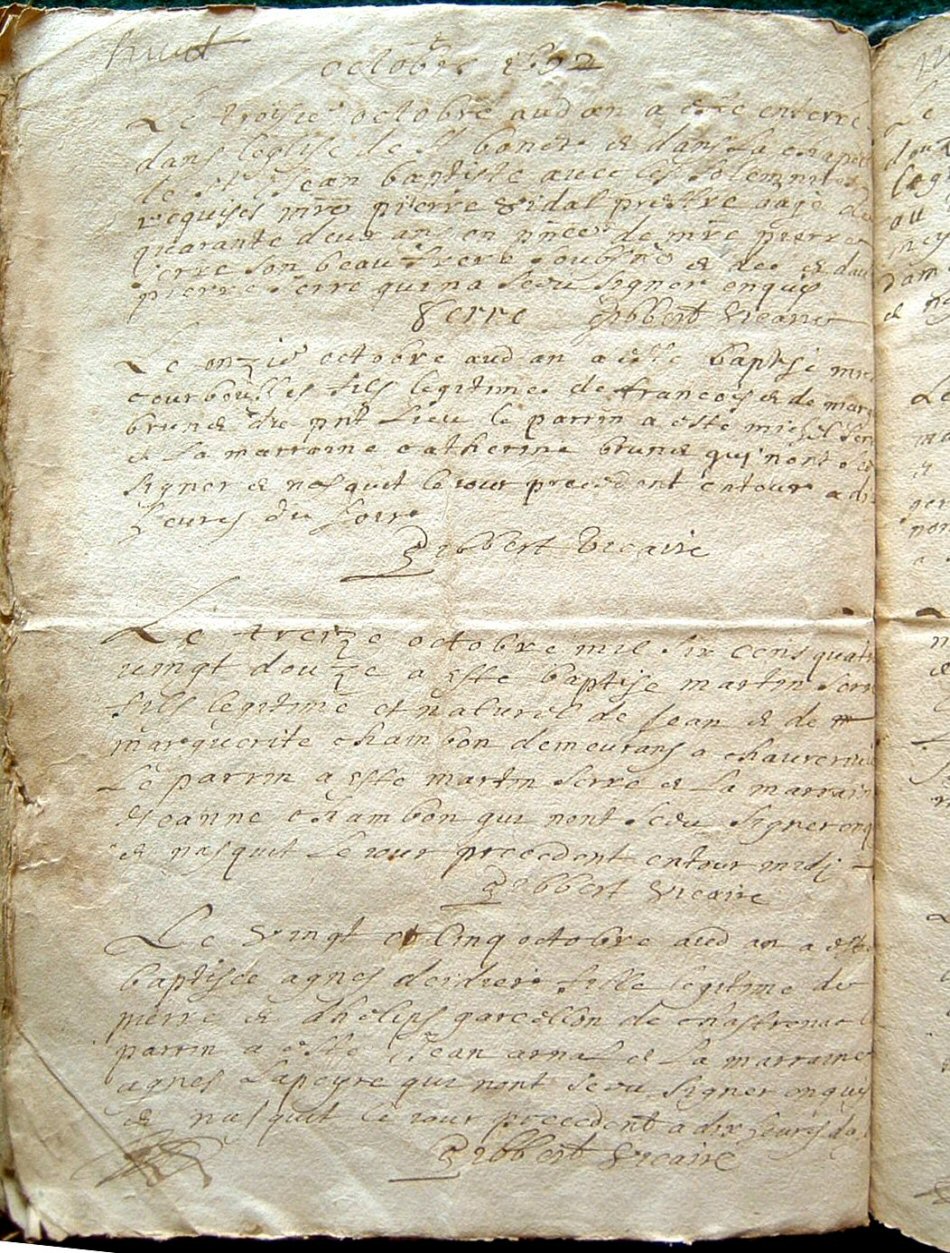 huit
octobre 1692
Le troisie octobre aud an a este enterré
dans leglise de St bonet & dans la chapelle
de St Jean baptiste avec les solemnités
requises mre pierre vidal prestre aage de
quarante deux ans en pnce de mre pierre
serre son beau frere soubsne & de & dau
pierre serre qui na sceu signer enquis
Serre Gibbert vicaire
Le onzie octobre aud an a este baptisé
courboulles fils legitime de francois & de mar
brunel du pnt lieu le parrin a este michel
& la marraine catherine brunel qui nont sceu
signer & nasquit le iour precedent entour a dix
heures du soire
Gibbert vicaire
Le treize octobre mil six cens quatre
vingt douze a este baptise martin serre
fils legitime et naturel de Jean & de m
marguerite chambon demeurans a
Le parrin a este martin serre & la marraine
Jeanne chambon qui nont sceu signer enq
& nasquit le iour precedent entour midi
Gibbert vicaire
Le vingt et cinq octobre aud an a este
baptisée agnes deidier fille legitime de
pierre & dhelips garcellon de
parrin a este Jean arnal & la marraine
agnes lapeyre qui nont sceu signer enquis
& nasquit le iour precedent a dix heures da
Gibbert vicaire